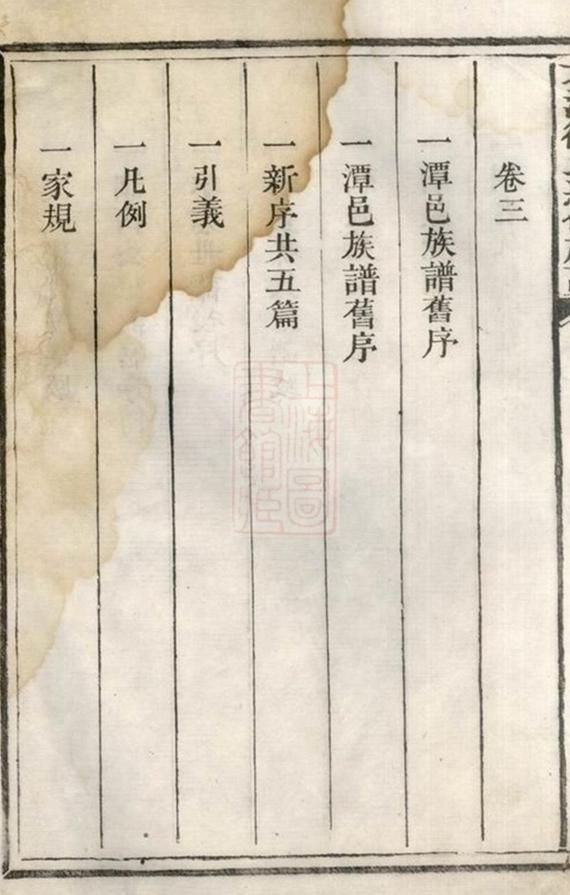 卷三
一潭邑族譜舊序
一潭邑族譜舊序
一新序共五篇
一引義
一凡例
一家規